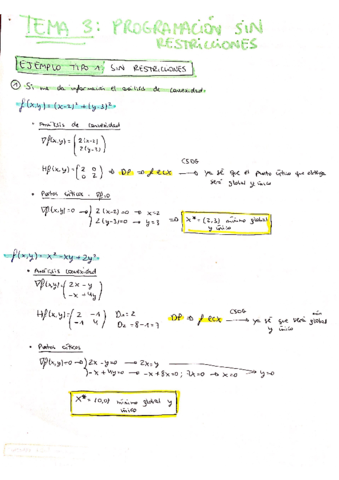 TEMA 3: PROGRAMACIÓN SIN
RESTRICCIONES
EJEMPLO TIPO 1: SIN RESTRICCIONES
① Si me da información el análisis de convexidad.
f(x,y) = (x-2)² + (y-3)²
• Análisis de convexidad
∇f(x,y) = (2(x-2)
2(y-3))
Hf(x,y) = (2 0
0 2) ⇒ DP ⇒ f ECX → CSOG ya sé que el punto crítico que obtenga
será global y único
• Puntos críticos
∇f(x,y)=0 → {2(x-2)=0 → x=2
2(y-3)=0 → y=3 ⇒ X* = (2,3) mínimo global
y único
f(x,y) = x² - xy + 2y²
• Análisis convexidad
∇f(x,y) (2x - y
-x + 4y)
Hf(x,y) = (2 -1
-1 4) D₁=2
D₂=8-1=7 DP ⇒ f ECX → CSOG ya sé que será global
y único
• Puntos críticos
∇f(x,y)=0 → {2x-y=0 → 2x=y
-x+4y=0 → -x+8x=0; 7x=0 → x=0 → y=0
X* = (0,0) mínimo global y
único